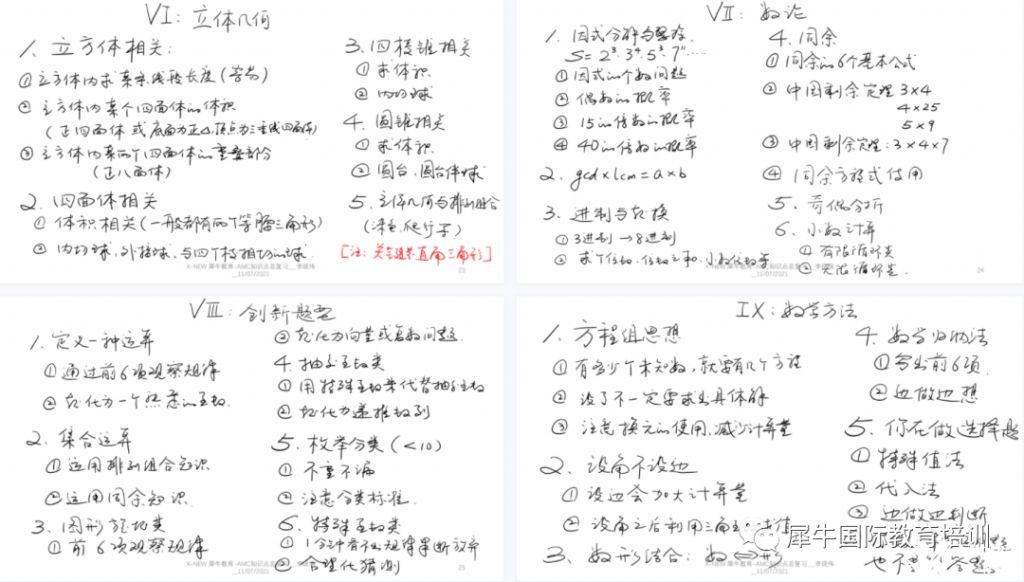 VI: 立体几何
1. 立方体相关:
① 立方体内求某条线段长度(字书)
② 立方体内某个四面体的体积
(正四面体 或 底面为正△,顶点为三垂线四面体)
③ 立方体内某两个四面体的重叠部分
(正八面体)
2. 四面体相关
① 体积相关(一般都有两个等腰三角形)
② 内切球,外接球,与四个棱相切的球
3. 四棱锥相关
① 求体积
② 内切球
4. 圆锥相关
① 求体积
② 圆台,圆台体球
5. 立体几何与排列组合
(涂色,爬行等)
[注: 关键还是直角三角形]
X-NEW 犀牛教育 -AMC知识点总复习__李现伟
__11/07/2021
23
VII: 数论
1. 因式分解与幂存
S=2³·3⁴·5³·7''....
① 因式的个数问题
② 偶数的概率
③ 15的倍数的概率
④ 40的倍数的概率
2. gcd×lcm=a×b
3. 进制与转换
① 3进制→8进制
② 求个位数,位数之和,小数位数等
4. 同余
① 同余的6个基本公式
② 中国剩余定理 3×4
4×25
5×9
③ 中国剩余定理: 3×4×7
④ 同余方程式使用
5. 奇偶分析
6. 小数计算
① 有限循环类
② 无限循环类
X-NEW 犀牛教育 -AMC知识点总复习__李现伟
__11/07/2021
24
VIII: 创新题型
1. 定义一种运算
① 通过前6项观察规律
② 转化为一个熟悉的函数.
2. 集合运算
① 运用排列组合知识
② 运用同余知识.
3. 图形规律类
① 前6项观察规律
② 转化为向量或复数问题.
4. 抽象函数类
① 用特殊函数来代替抽象函数
② 转化为递推数列
5. 枚举分类 (<10)
① 不重不漏
② 注意分类标准.
6. 特殊函数类
① 1分钟看不出规律果断放弃
② 合理化猜测
X-NEW 犀牛教育 -AMC知识点总复习__李现伟
__11/07/2021
25
IX: 数学方法
1. 方程组思想
① 有多少个未知数,就要有几个方程
② 设了不一定要求出具体解
③ 注意换元的使用,减少计算量
2. 设角不设边
① 设边会加大计算量
② 设角之后利用三角
3. 数形结合: 数⇔形
4. 数学归纳法
① 写出前6项.
② 边做边想
5. 你在做选择题
① 特殊值法
② 代入法
③ 边做边判断
X-NEW 犀牛教育 -AMC知识点总复习__李现伟
__11/07/2021
犀牛国际教育培训